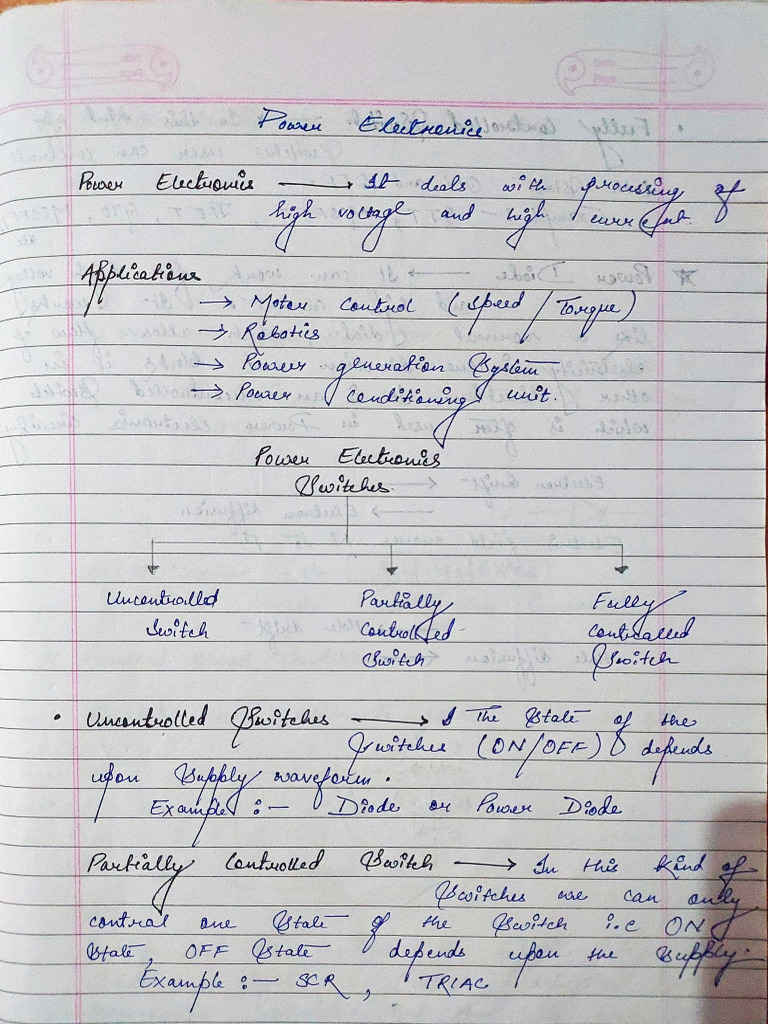 Power Electronics
Power Electronics → It deals with processing of
high voltage and high current.
Applications
→ Motor control (Speed / Torque)
→ Robotics
→ Power generation System
→ Power conditioning unit.
Power Electronics
Switches.
Uncontrolled Partially Fully
Switch Controlled Controlled
Switch Switch
• Uncontrolled Switches → The State of the
Switches (ON/OFF) depends
upon Supply waveform.
Example :- Diode or Power Diode
Partially Controlled Switch → In this kind of
Switches we can only
control one State of the Switch i.e ON
State, OFF State depends upon the supply.
Example :- SCR, TRIAC